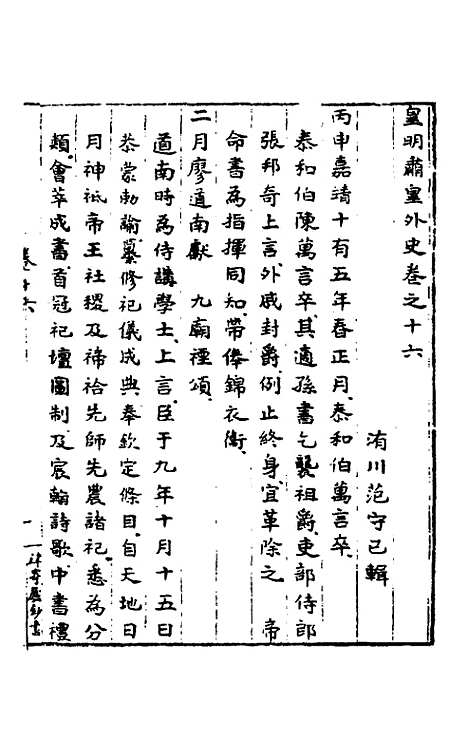 皇明肅皇外史卷之十六
洧川范守己輯
丙申嘉靖十有五年春正月泰和伯萬言卒
泰和伯陳萬言卒其適孫書乞襲祖爵吏部侍郎
張邦奇上言外戚封爵例止終身宜革除之 帝
命書為指揮同知帶俸錦衣衛
二月廖道南獻 九廟禋頌
道南時為侍講學士上言臣于九年十月十五日
恭蒙勅諭纂修祀儀成典奉欽定條目自天地日
月神祇帝王社稷及禘祫先師先農諸祀悉為分
類會萃成書首冠祀壇圖制及宸翰詩歌中書禮
卷十六
一